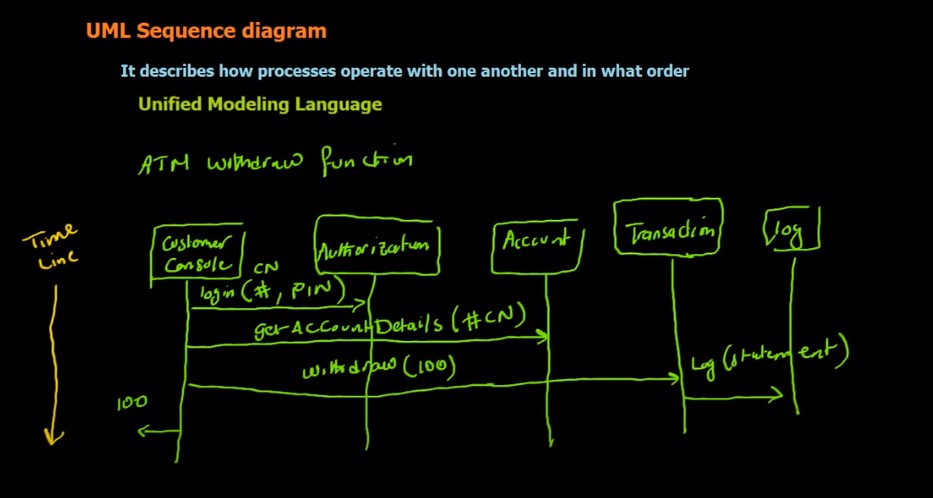 UML Sequence diagram
It describes how processes operate with one another and in what order
Unified Modeling Language
ATM withdraw function
Time
Line
Customer
Console
Authorization
Account
Transaction
log
CN
login (#, PIN)
get-AccountDetails (#CN)
withdraw (100)
Log (statement)
100